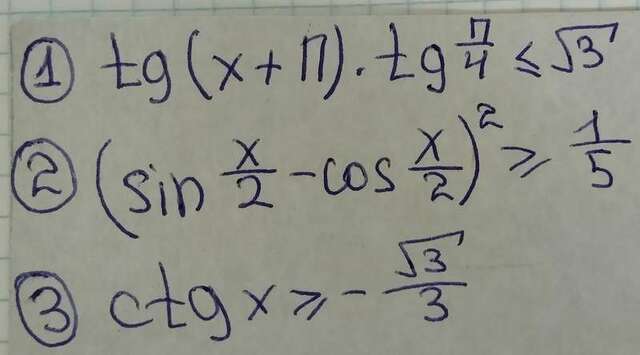 ① tg(x+π)·tg π/4 ≤ √3
② (sin x/2 - cos x/2)² ≥ 1/5
③ ctg x ≥ - √3/3